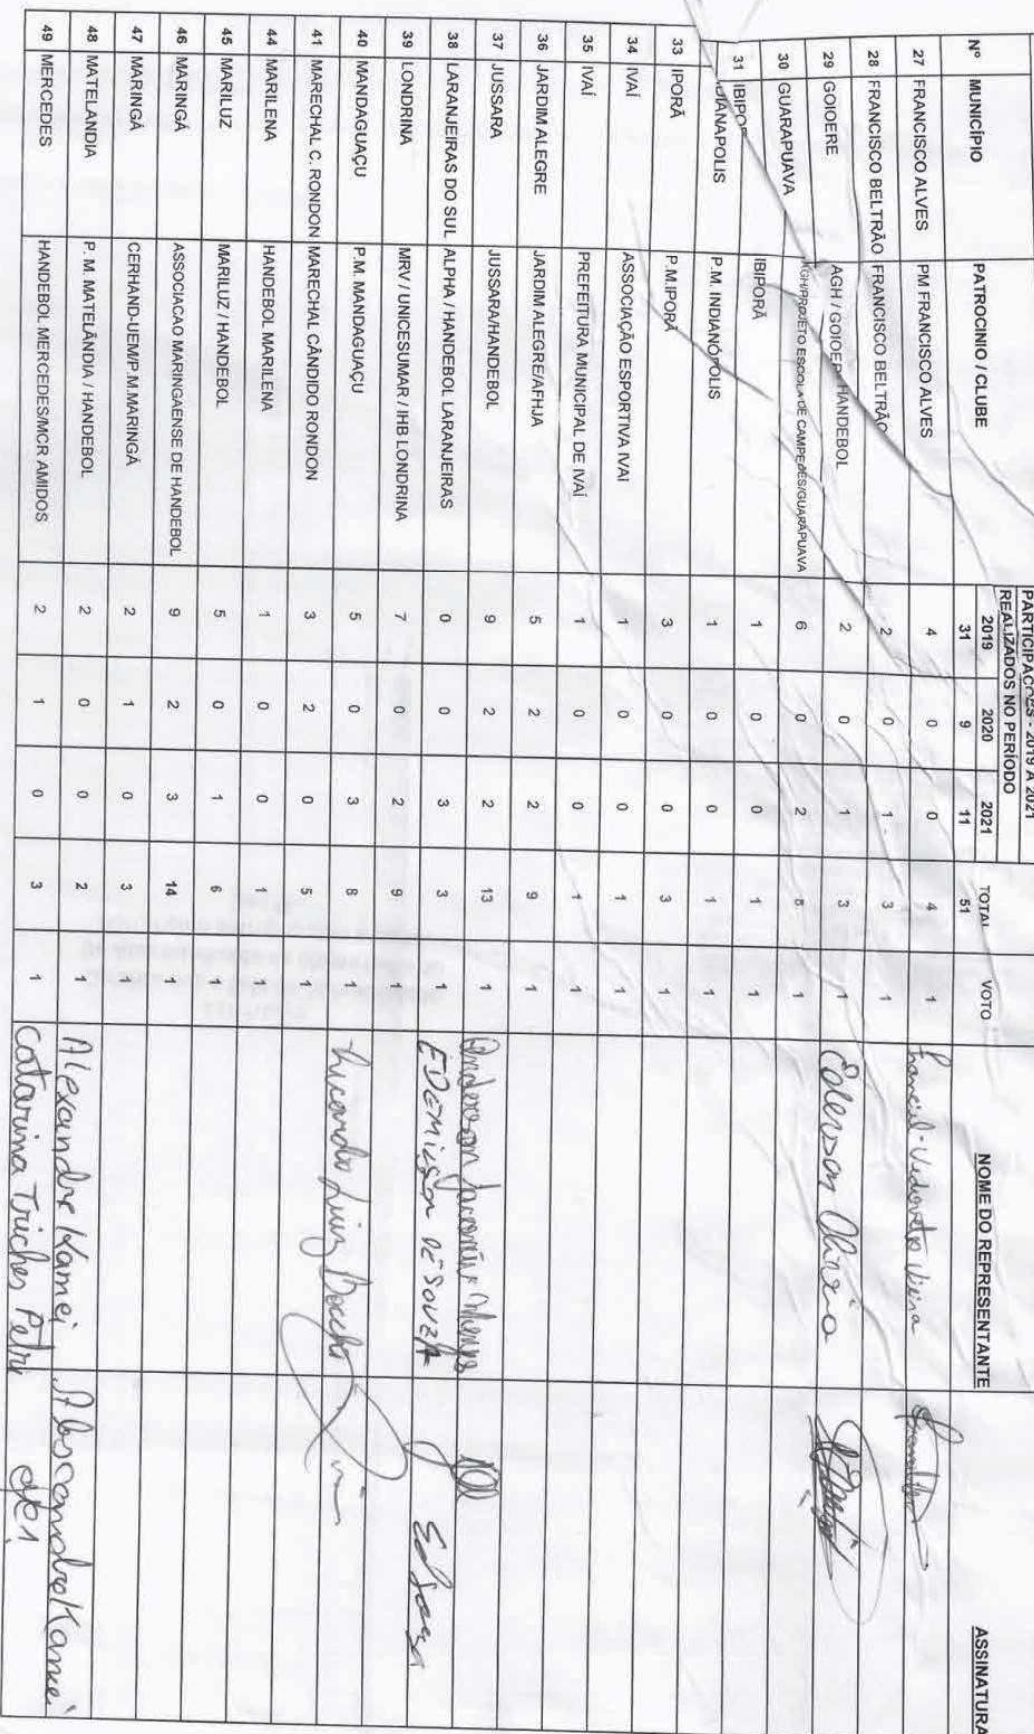 PARTICIPAÇÕES - 2019 A 2021
REALIZADOS NO PERÍODO
Nº MUNICÍPIO PATROCINIO / CLUBE 2019 2020 2021 TOTAL VOTO NOME DO REPRESENTANTE ASSINATURA
31 9 11 51
27 FRANCISCO ALVES PM FRANCISCO ALVES 4 0 0 4 1 Vieira
28 FRANCISCO BELTRÃO FRANCISCO BELTRÃO 2 0 1 3 1
29 GOIOERE AGH / GOIOERE HANDEBOL 2 0 1 3 1 Ederson
30 GUARAPUAVA AGH/PROJETO ESCOLA DE CAMPEÕES/GUARAPUAVA 6 0 2 8 1
31 IBIPOR IBIPORÃ 1 0 0 1 1
DIANAPOLIS P.M. INDIANÓPOLIS 1 0 0 1 1
33 IPORÃ P.M.IPORÃ 3 0 0 3 1
34 IVAÍ ASSOCIAÇÃO ESPORTIVA IVAI 1 0 0 1 1
35 IVAÍ PREFEITURA MUNICIPAL DE IVAÍ 1 0 0 1 1
36 JARDIM ALEGRE JARDIM ALEGRE/AFHJA 5 2 2 9 1
37 JUSSARA JUSSARA/HANDEBOL 9 2 2 13 1 Anderson
38 LARANJEIRAS DO SUL ALPHA / HANDEBOL LARANJEIRAS 0 0 3 3 1 EDEMILSON DE SOUZA Ed Souza
39 LONDRINA MRV / UNICESUMAR / IHB LONDRINA 7 0 2 9 1
40 MANDAGUAÇU P.M. MANDAGUAÇU 5 0 3 8 1 Ricardo Luiz
41 MARECHAL C. RONDON MARECHAL CÂNDIDO RONDON 3 2 0 5 1
44 MARILENA HANDEBOL MARILENA 1 0 0 1 1
45 MARILUZ MARILUZ / HANDEBOL 5 0 1 6 1
46 MARINGÁ ASSOCIACAO MARINGAENSE DE HANDEBOL 9 2 3 14 1
47 MARINGÁ CERHAND-UEM/P.M.MARINGÁ 2 1 0 3 1
48 MATELANDIA P. M. MATELÂNDIA / HANDEBOL 2 0 0 2 1 Alexandre Kamei Alexandre Kamei
49 MERCEDES HANDEBOL MERCEDES/MCR AMIDOS 2 1 0 3 1 Catarina Triches Petri